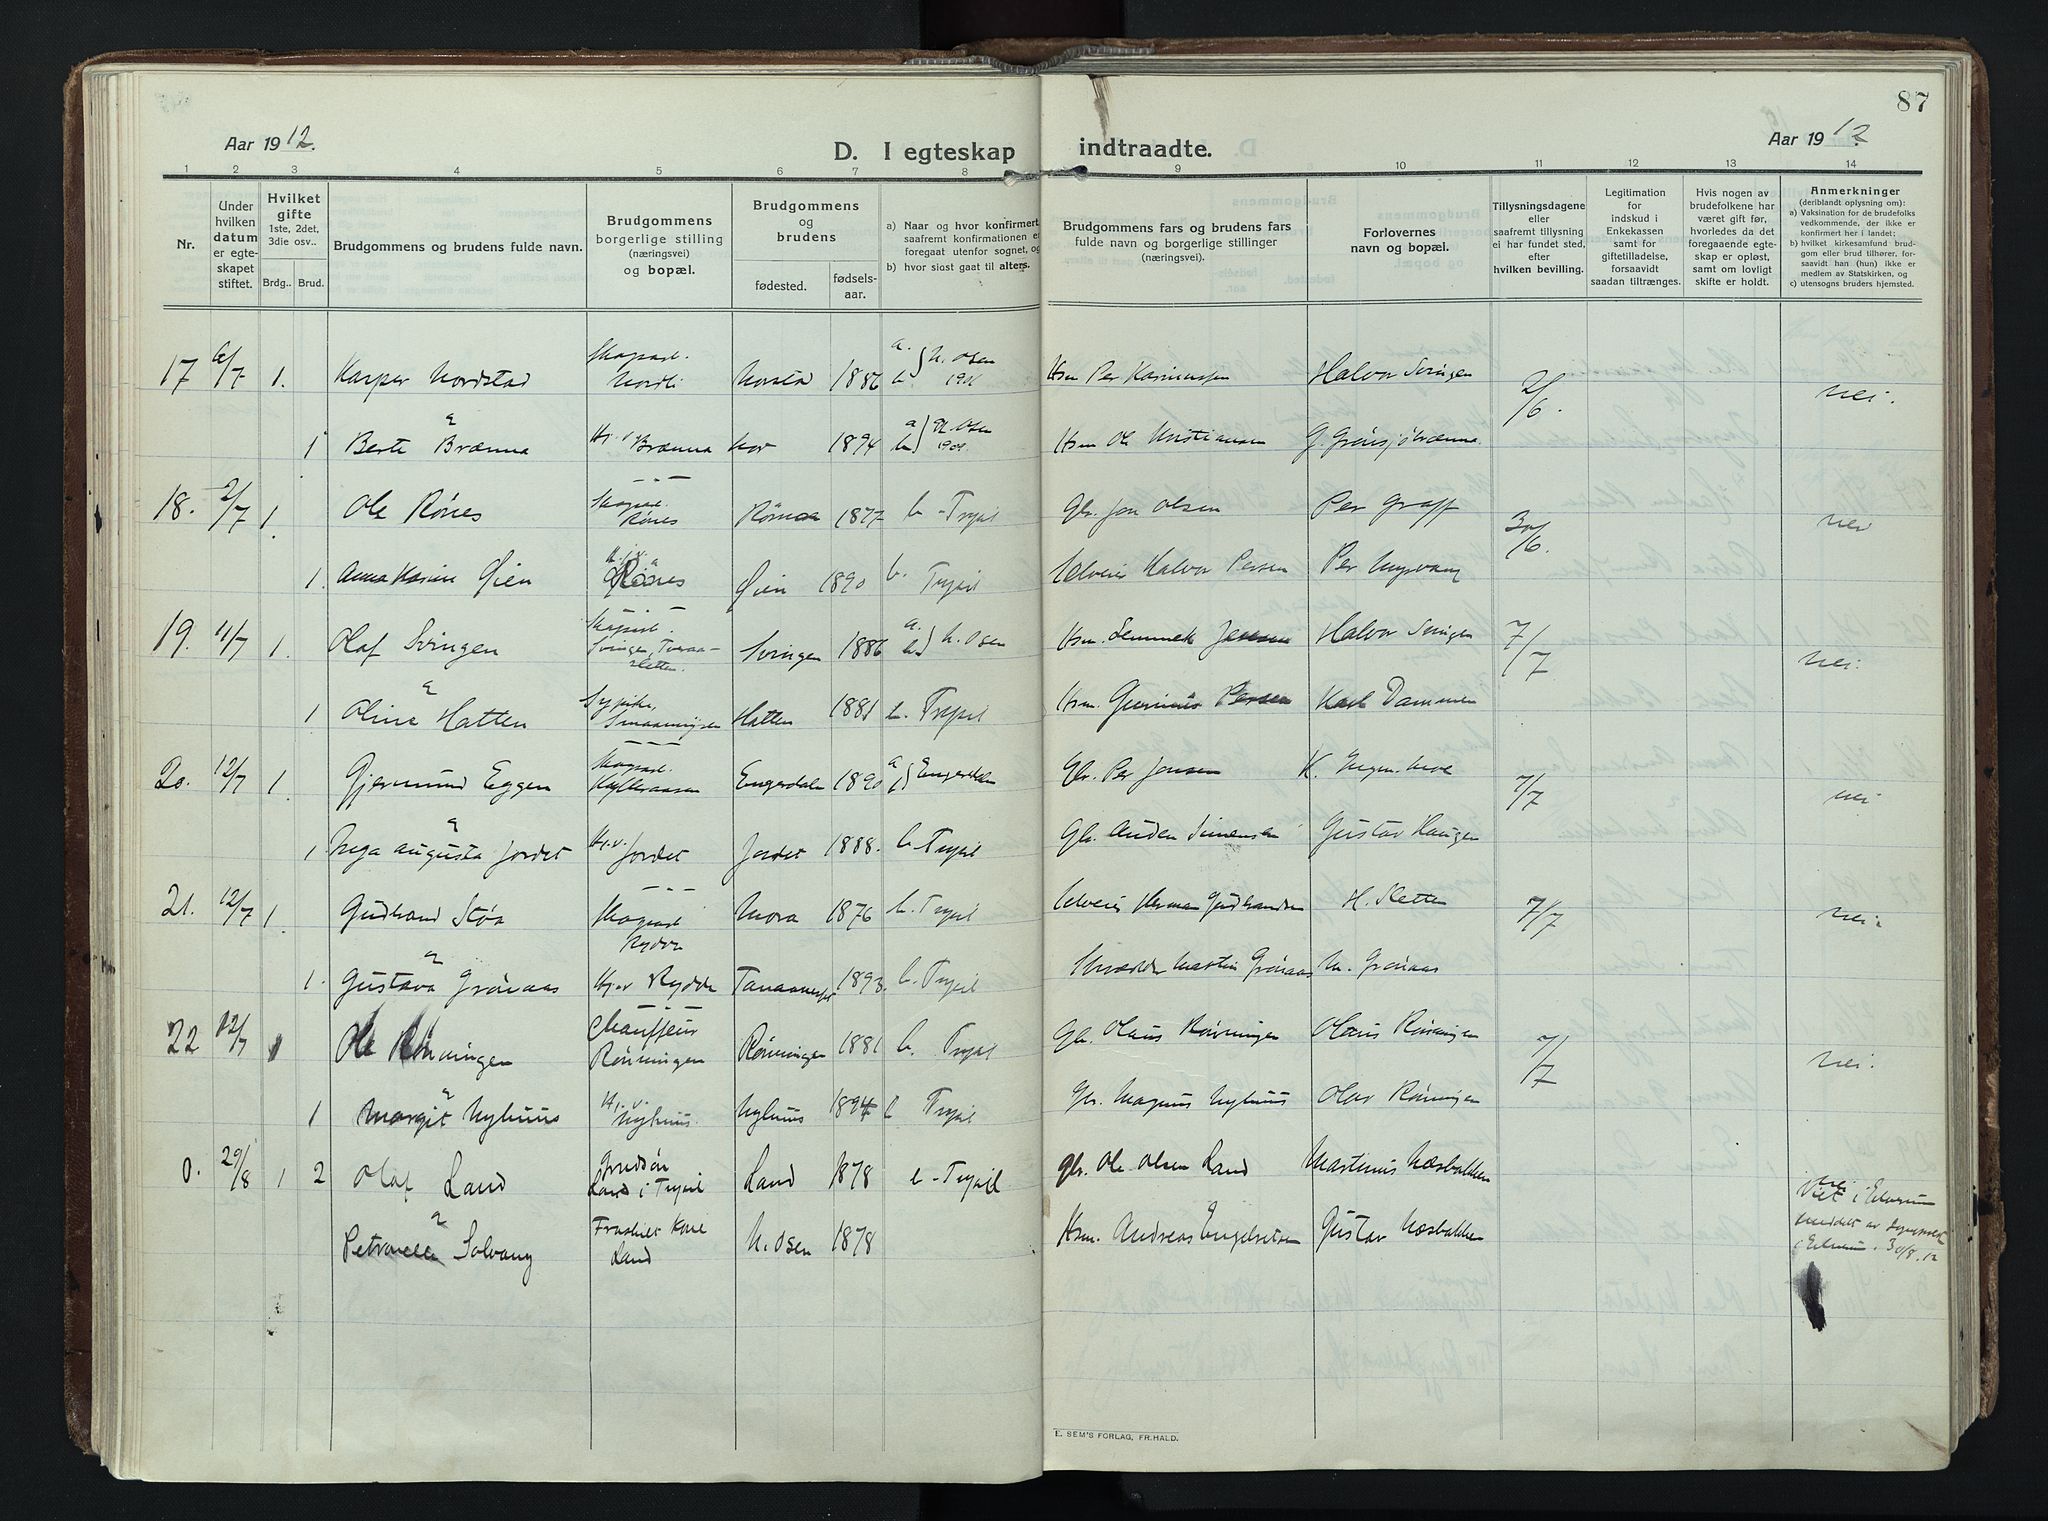 87
Aar 1912.
D. I egteskap indtraadte.
Aar 1912
1 2 3 4 5 6 7 8 9 10 11 12 13 14
Nr.
Under hvilken datum er egteskapet stiftet.
Hvilket gifte 1ste, 2det, 3die osv..
Brdg.. Brud.
Brudgommens og brudens fulde navn.
Brudgommens borgerlige stilling (næringsvei) og bopæl.
Brudgommens og brudens
fødested. fødselsaar.
a) Naar og hvor konfirmert, saafremt konfirmationen er foregaat utenfor sognet, og
b) hvor sidst gaat til alters.
Brudgommens fars og brudens fars fulde navn og borgerlige stillinger (næringsvei).
Forlovernes navn og bopæl.
Tillysningsdagene eller saafremt tillysning ei har fundet sted, efter hvilken bevilling.
Legitimation for indskud i Enkekassen samt for giftetilladelse, forsaavidt saadan tiltrænges.
Hvis nogen av brudefolkene har været gift før, hvorledes da det foregaaende egteskap er opløst, samt om lovligt skifte er holdt.
Anmerkninger (deriblandt oplysning om:
a) Vaksination for de brudefolks vedkommende, der ikke er konfirmert her i landet;
b) hvilket kirkesamfund brudgom eller brud tilhører, forsaavidt han (hun) ikke er medlem av Statskirken, og
c) utensogns bruders hjemsted.
17 6/7 1. Kasper Nordstad Nordli 1886 a. b. N. Osen Hsm Per Halvor Svingen 2/6. nei.
&
1 Berte Brænna Brænna Nor 1894 a b N. Osen 1909. Hsm Ole Kristiansen
18. 2/7 1. Ole Rönes Rönes 1877 b - Trysil Gbr. Jon Olsen Per Graff 30/6. nei
&
1. Anna Karine Øien Rönes Øien 1890 b. Trysil Selveier Halvor Persen Per
19. 11/7 1. Olaf Svingen Svingen Svingen 1886 a. b. N. Osen Hsm. Halvor Svingen 7/7 nei.
&
1 Oline Hatten Hatten 1881 b. Trysil Hsm. Persen Karl Dammen
20. 12/7 1. Gjermund Eggen Engerdalen 1890 a b Engerdalen Gbr. Per Jensen K. 7/7 nei
&
1 Inga Augusta Jordet H.v. Jordet Jordet 1888. b. Trysil Gbr. Auden Simensen Gustav Haugen
21. 12/7 1. Gudbrand Støa Rydde Mora 1876 b. Trysil Selveier Herman Gudbrandsen H. Sletten 7/7 nei.
&
1. Gustava Grönaas Rydde 1893. b. Trysil Martin Grönaas M. Grönaas
22 12/7 1 Ole Rönningen Chauffeur Rönningen Rönningen 1881 b. Trysil Gbr. Olaus Rönningen Olaus Rönningen 7/7 nei.
&
1 Margit Nyhuus H.v. Nyhuus. Nyhuus 1894 b Trysil Gbr. Magnus Nyhuus Olav Rönningen
0. 29/8 1 2 Olaf Land Land i Trysil Land 1878 b - Trysil gbr. Ole Olsen Land Martinus Næsbakken nei.
&
Petronelle Solvang Fraskilt Kone Land N. Osen 1878 Hsm. Andreas Engelsetsen Gustav Næsbakken
Viet i Elverum meddelt av Sognepresten i Elverum 30/8.12
E. SEM'S FORLAG, FR.HALD.